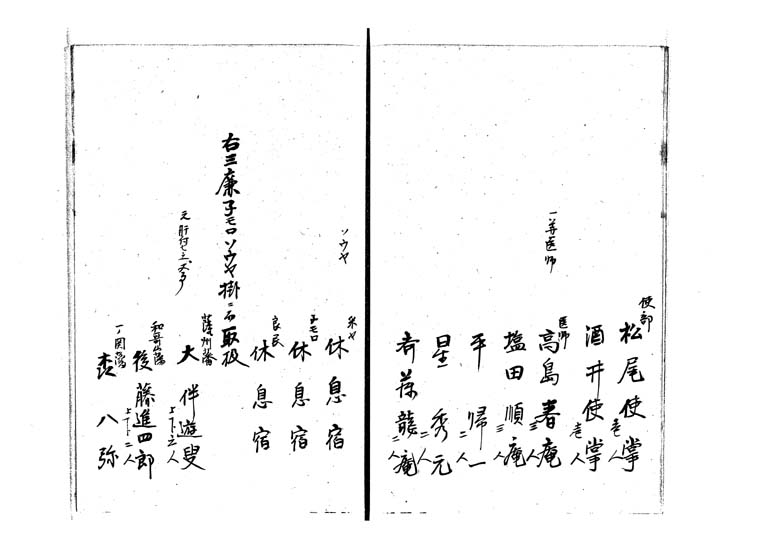 使部
松尾使掌
壱人
酒井使掌
壱人
一等医師
医師
高島春庵
三人
塩田順庵
三人
平歸一
二人
星秀元
二人
斉藤龍庵
二人
ソウヤ
休息宿
子モロ
休息宿
良民
休息宿
右三廉子モロソウヤ掛ニ而取扱
薩州藩
大伴遊叟
上下三人
和哥山藩
後藤進四郎
上下二人
一関藩
森八弥